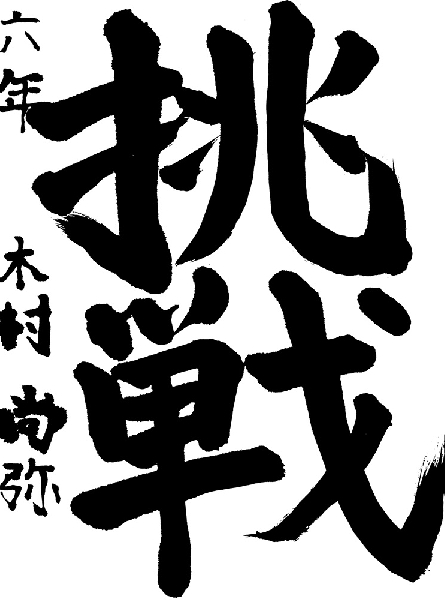 挑戦
六年 木村尚弥